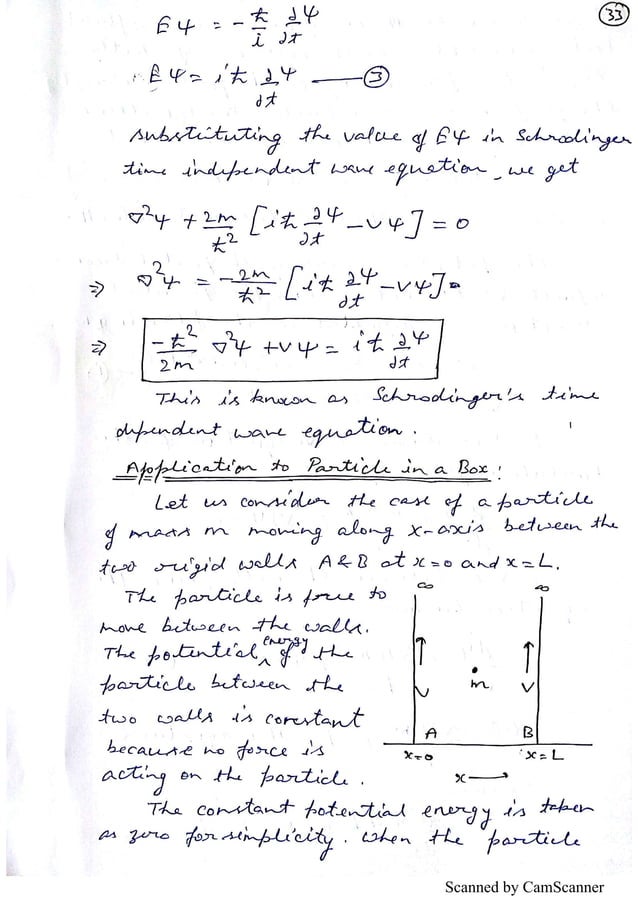 33
Eψ = -ħ/i ∂ψ/∂t
∴ Eψ = iħ ∂ψ/∂t —— ③
substituting the value of Eψ in Schrodinger
time independent wave equation, we get
∇²ψ + 2m/ħ² [iħ ∂ψ/∂t - Vψ] = 0
⇒ ∇²ψ = -2m/ħ² [iħ ∂ψ/∂t - Vψ]
⇒ -ħ²/2m ∇²ψ + Vψ = iħ ∂ψ/∂t
This is known as Schrodinger's time
dependent wave equation.
Application to Particle in a Box:
Let us consider the case of a particle
of mass m moving along x-axis between the
two rigid walls A & B at x=0 and x=L.
The particle is free to
move between the walls.
The potential energy of the
particle between the
two walls is constant
because no force is
acting on the particle.
∞ ∞
V m V
A B
x=0 x=L
x →
The constant potential energy is taken
as zero for simplicity. When the particle
Scanned by CamScanner